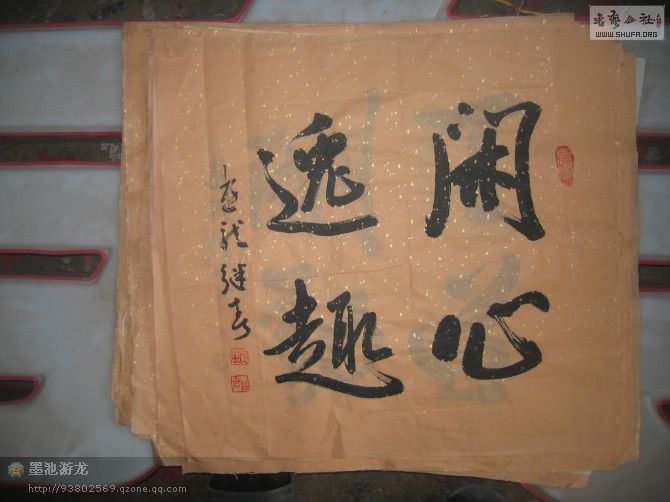 閑心
逸趣
游龙继春
书艺公社
WWW.SHUFA.ORG
墨池游龙
http://93802569.qzone.qq.com